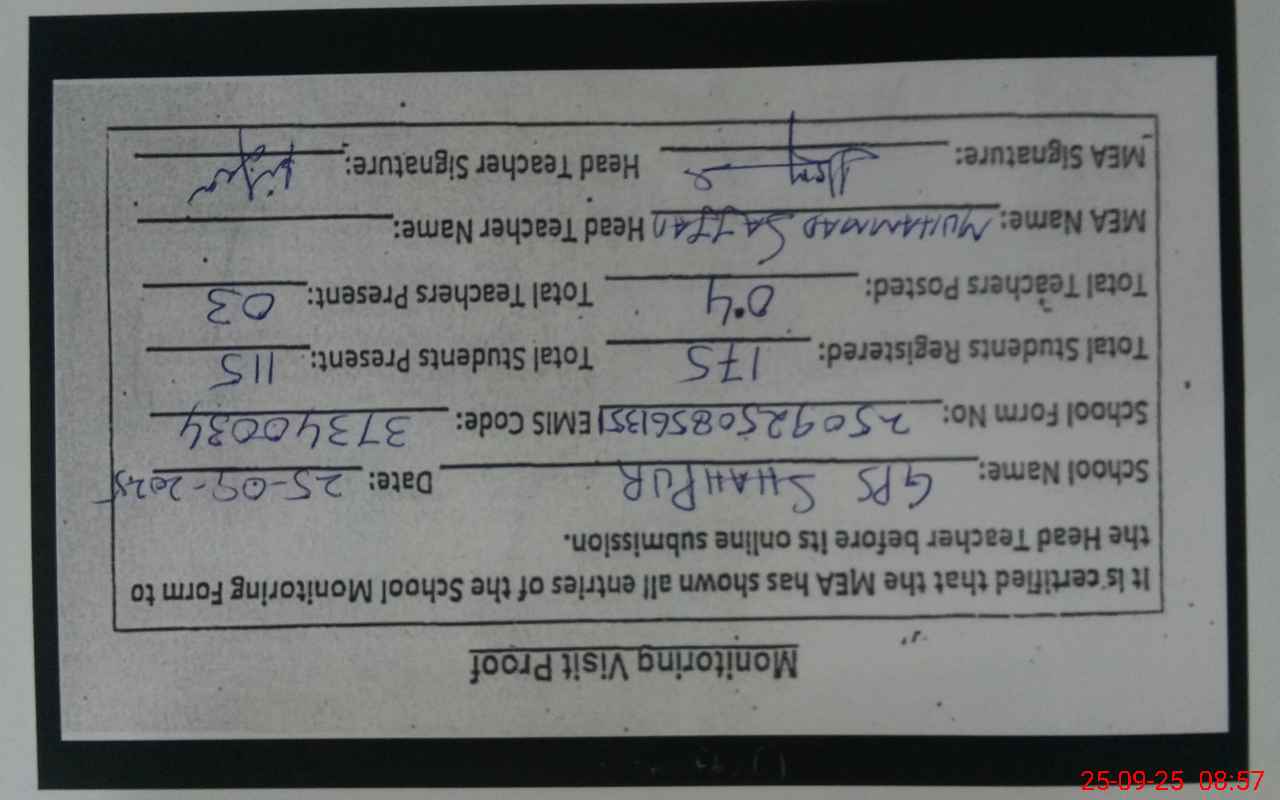 Monitoring Visit Proof
It is certified that the MEA has shown all entries of the School Monitoring Form to
the Head Teacher before its online submission.
School Name: GPS SHAHPUR Date: 25-09-2025
School Form No: 250925085613551 EMIS Code: 37340034
Total Students Registered: 175 Total Students Present: 115
Total Teachers Posted: 04 Total Teachers Present: 03
MEA Name: MUHAMMAD SAJJAD Head Teacher Name:
MEA Signature: Head Teacher Signature:
25-09-25 08:57